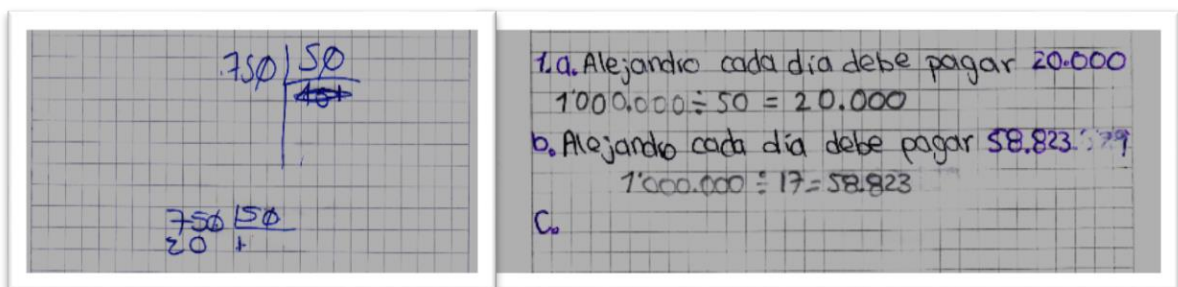 750 50
750 50
20 1
1.a. Alejandro cada día debe pagar 20.000
1'000.000 ÷ 50 = 20.000
b. Alejandro cada día debe pagar 58.823.
1'000.000 ÷ 17 = 58.823
C.